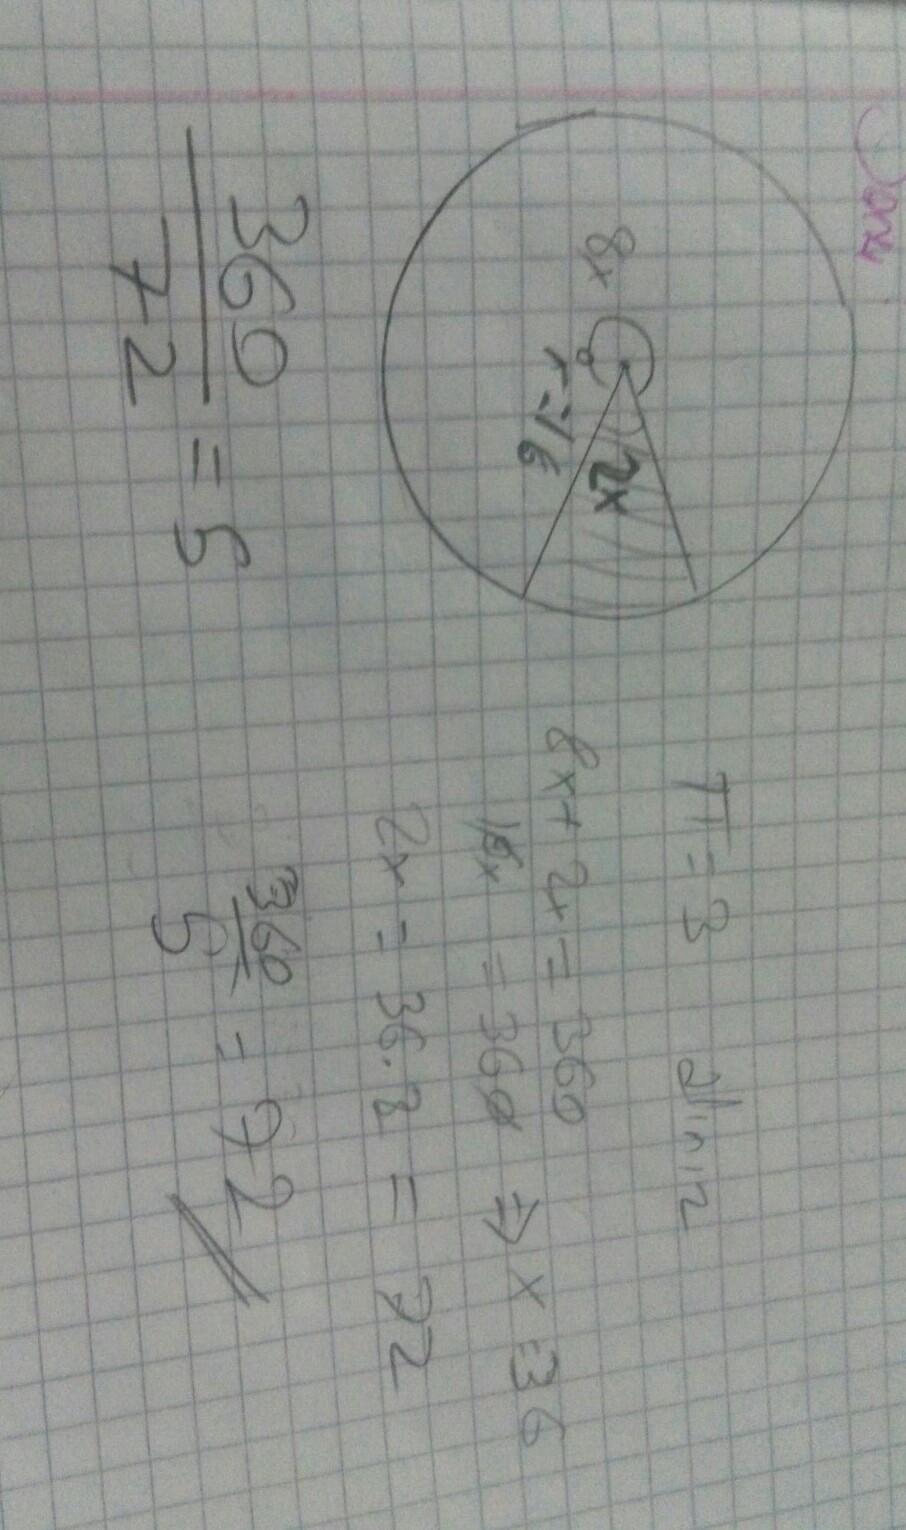 8x
r=16
2x
π = 3 alınız
8x + 2x = 360
10x = 360 ⇒ x = 36
2x = 36.2 = 72
360/5 = 72
360/72 = 5